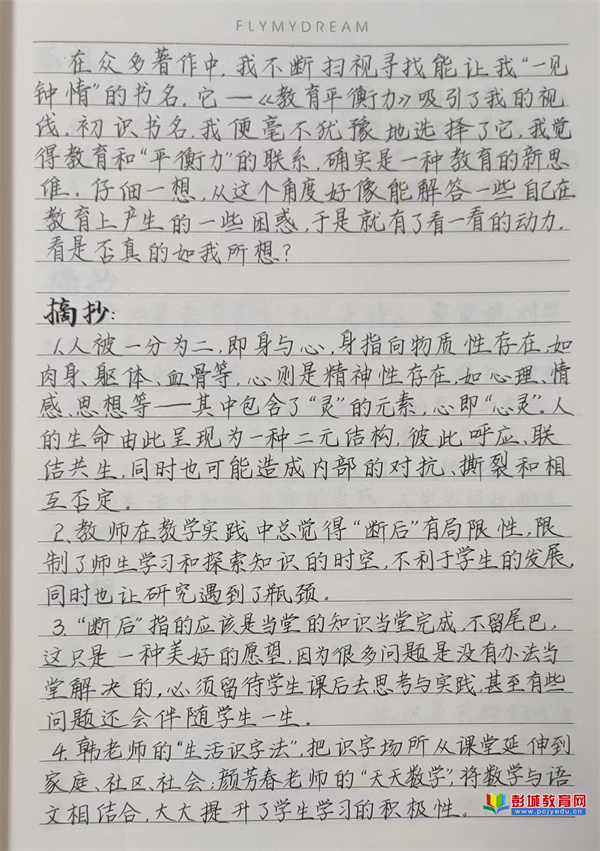 FLYMYDREAM
在众多著作中,我不断扫视寻找能让我“一见
钟情”的书名。它——《教育平衡力》吸引了我的视
线。初识书名,我便毫不犹豫地选择了它。我觉
得教育和“平衡力”的联系,确实是一种教育的新思
维。仔细一想,从这个角度好像能解答一些自己在
教育上产生的一些困惑,于是就有了看一看的动力。
看是否真的如我所想?
摘抄:
1.人被一分为二,即身与心,身指向物质性存在,如
肉身、躯体、血骨等,心则是精神性存在,如心理、情
感、思想等——其中包含了“灵”的元素,心即“心灵”。人
的生命由此呈现为一种二元结构,彼此呼应、联
结共生,同时也可能造成内部的对抗、撕裂和相
互否定。
2、教师在教学实践中总觉得“断后”有局限性,限
制了师生学习和探索知识的时空,不利于学生的发展,
同时也让研究遇到了瓶颈。
3.“断后”指的应该是当堂的知识当堂完成,不留尾巴,
这只是一种美好的愿望,因为很多问题是没有办法当
堂解决的,必须留待学生课后去思考与实践,甚至有些
问题还会伴随学生一生。
4.韩老师的“生活识字法”,把识字场所从课堂延伸到
家庭、社区、社会;颜芳春老师的“天天数学”,将数学与语
文相结合,大大提升了学生学习的积极性。
彭城教育网
www.pcjyedu.cn